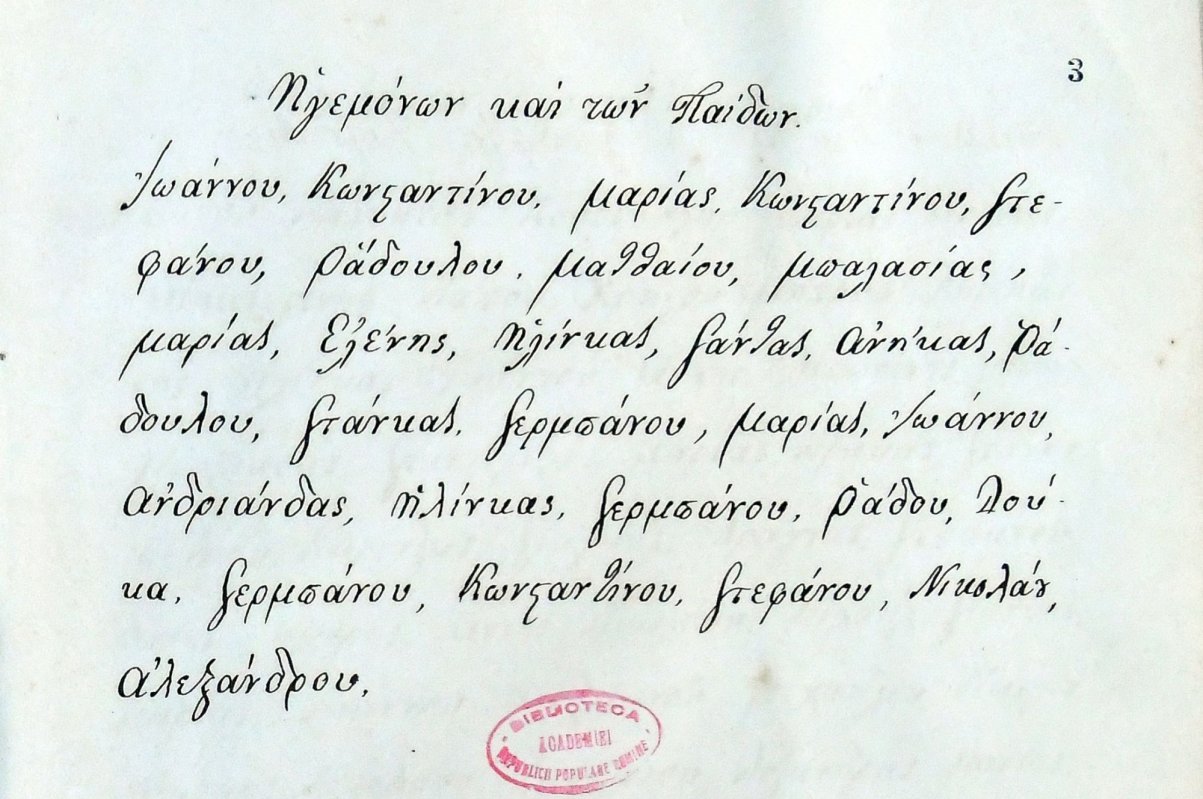 3
Ἡγεμόνων καὶ τῶν Παίδων.
Ἰωάννου, Κωνϛαντίνου, μαρίας, Κωνϛαντίνου, Στε-
φάνου, Ράδουλου, ματθαίου, μπαλασίας,
μαρίας, Ἑλένης, ἠλίνκας, Σάντας, ἀνήκας, Ρά-
δουλου, Στάνκας, Σερμπάνου, μαρίας, Ἰωάννου,
ἀνδριάνδας, ἠλίνκας, Σερμπάνου, Ῥάδου, Λού-
κα, Σερμπάνου, Κωνϛαντίνου, Στεφάνου, Νικολάȣ,
ἀλεξάνδρου.
BIBLIOTECA
ACADEMIEI
REPUBLICII POPULARE ROMINE